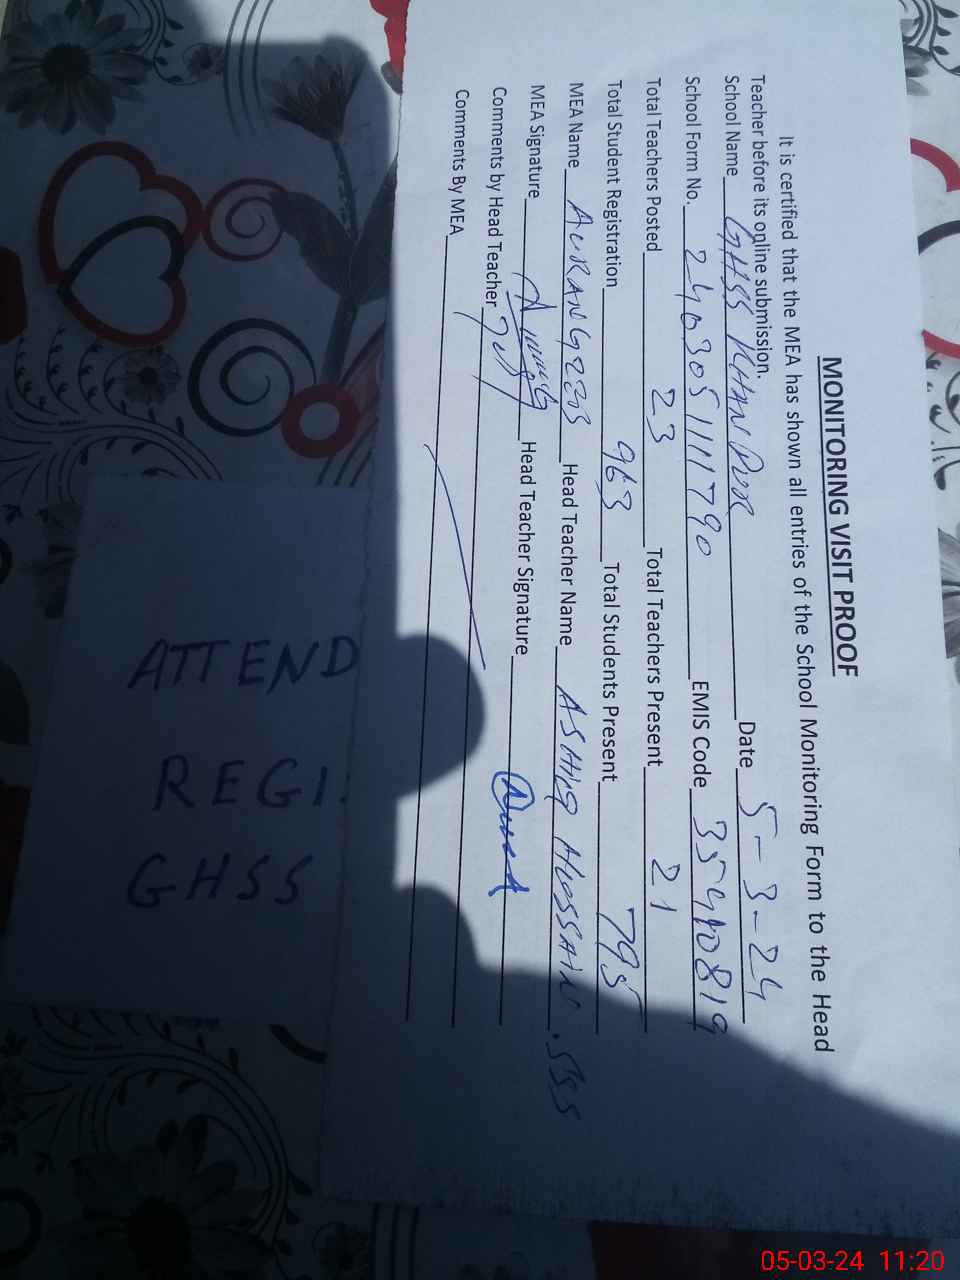 MONITORING VISIT PROOF
It is certified that the MEA has shown all entries of the School Monitoring Form to the Head
Teacher before its online submission.
School Name GHSS KHANPUR Date 5-3-24
School Form No. 240305111790 EMIS Code 35440819
Total Teachers Posted 23 Total Teachers Present 21
Total Student Registration 963 Total Students Present 795
MEA Name AURANGZEB Head Teacher Name ASHIQ HUSSAIN . SSS
MEA Signature Head Teacher Signature
Comments by Head Teacher
Comments By MEA
ATTEND
REGI.
GHSS
05-03-24 11:20